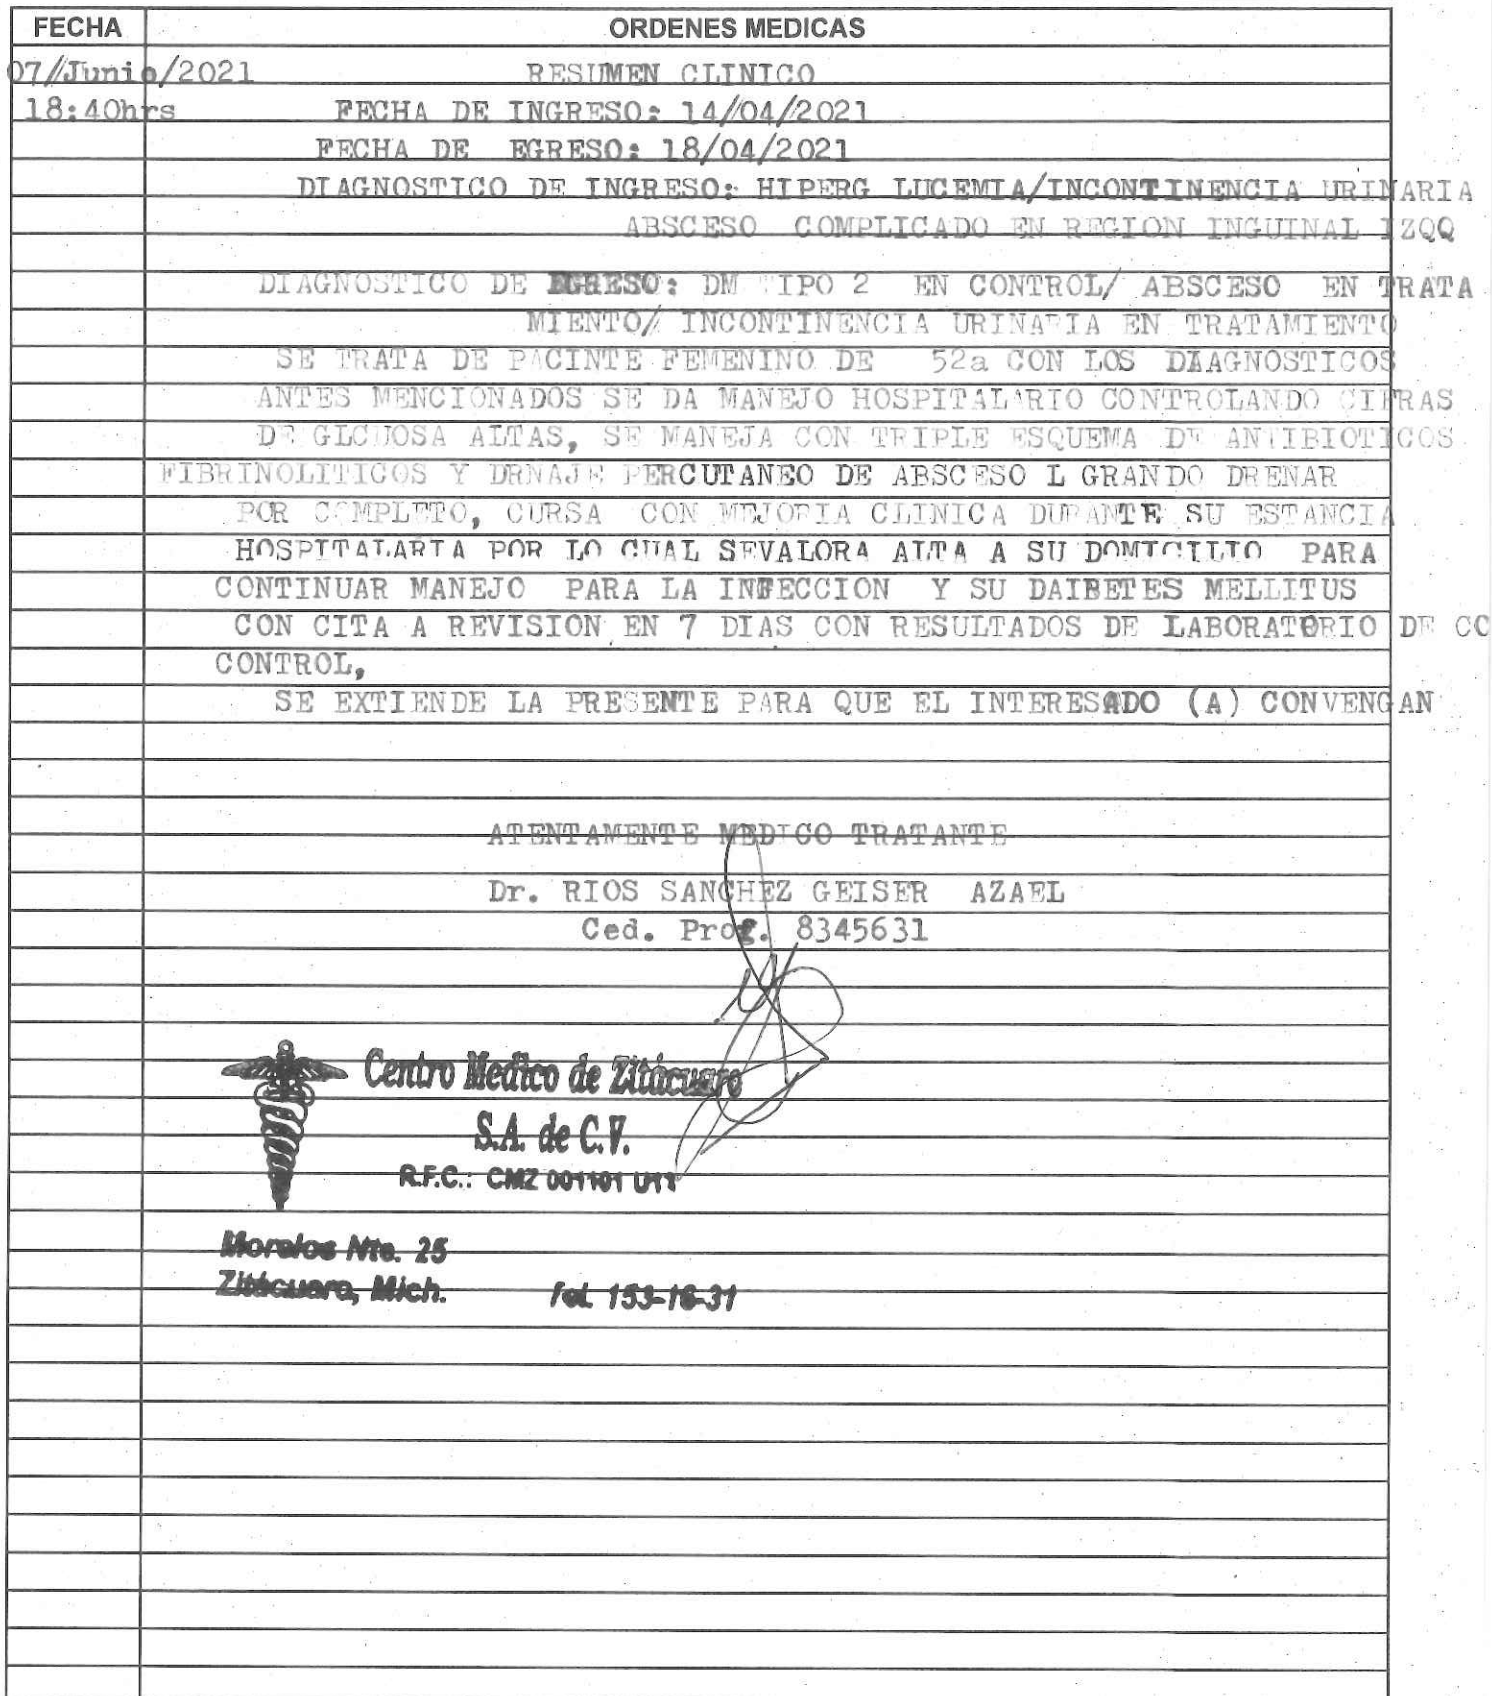 FECHA ORDENES MEDICAS
07//Junio/2021 RESUMEN CLINICO
18:40hrs FECHA DE INGRESO: 14//04//2021
FECHA DE EGRESO: 18/04/2021
DIAGNOSTICO DE INGRESO: HIPERG LUCEMIA/INCONTINENCIA URINARIA
ABSCESO COMPLICADO EN REGION INGUINAL IZQQ
DIAGNOSTICO DE EGRESO: DM TIPO 2 EN CONTROL/ ABSCESO EN TRATA
MIENTO// INCONTINENCIA URINARIA EN TRATAMIENTO
SE TRATA DE PACINTE FEMENINO DE 52a CON LOS DAAGNOSTICOS
ANTES MENCIONADOS SE DA MANEJO HOSPITALARIO CONTROLANDO CIFRAS
DE GLCUOSA ALTAS, SE MANEJA CON TRIPLE ESQUEMA DE ANTIBIOTICOS
FIBRINOLITICOS Y DRNAJE PERCUTANEO DE ABSCESO L GRANDO DRENAR
POR COMPLETO, CURSA CON MEJORIA CLINICA DURANTE SU ESTANCIA
HOSPITALARIA POR LO CUAL SEVALORA ALTA A SU DOMICILIO PARA
CONTINUAR MANEJO PARA LA INFECCION Y SU DAIBETES MELLITUS
CON CITA A REVISION EN 7 DIAS CON RESULTADOS DE LABORATORIO DE CO
CONTROL,
SE EXTIENDE LA PRESENTE PARA QUE EL INTERESADO (A) CONVENGAN
ATENTAMENTE MEDICO TRATANTE
Dr. RIOS SANCHEZ GEISER AZAEL
Ced. Prof. 8345631
Centro Medico de Zitácuaro
S.A. de C.V.
R.F.C.: CMZ 001101 U11
Morelos Nte. 25
Zitácuaro, Mich. Tel. 153-16-31